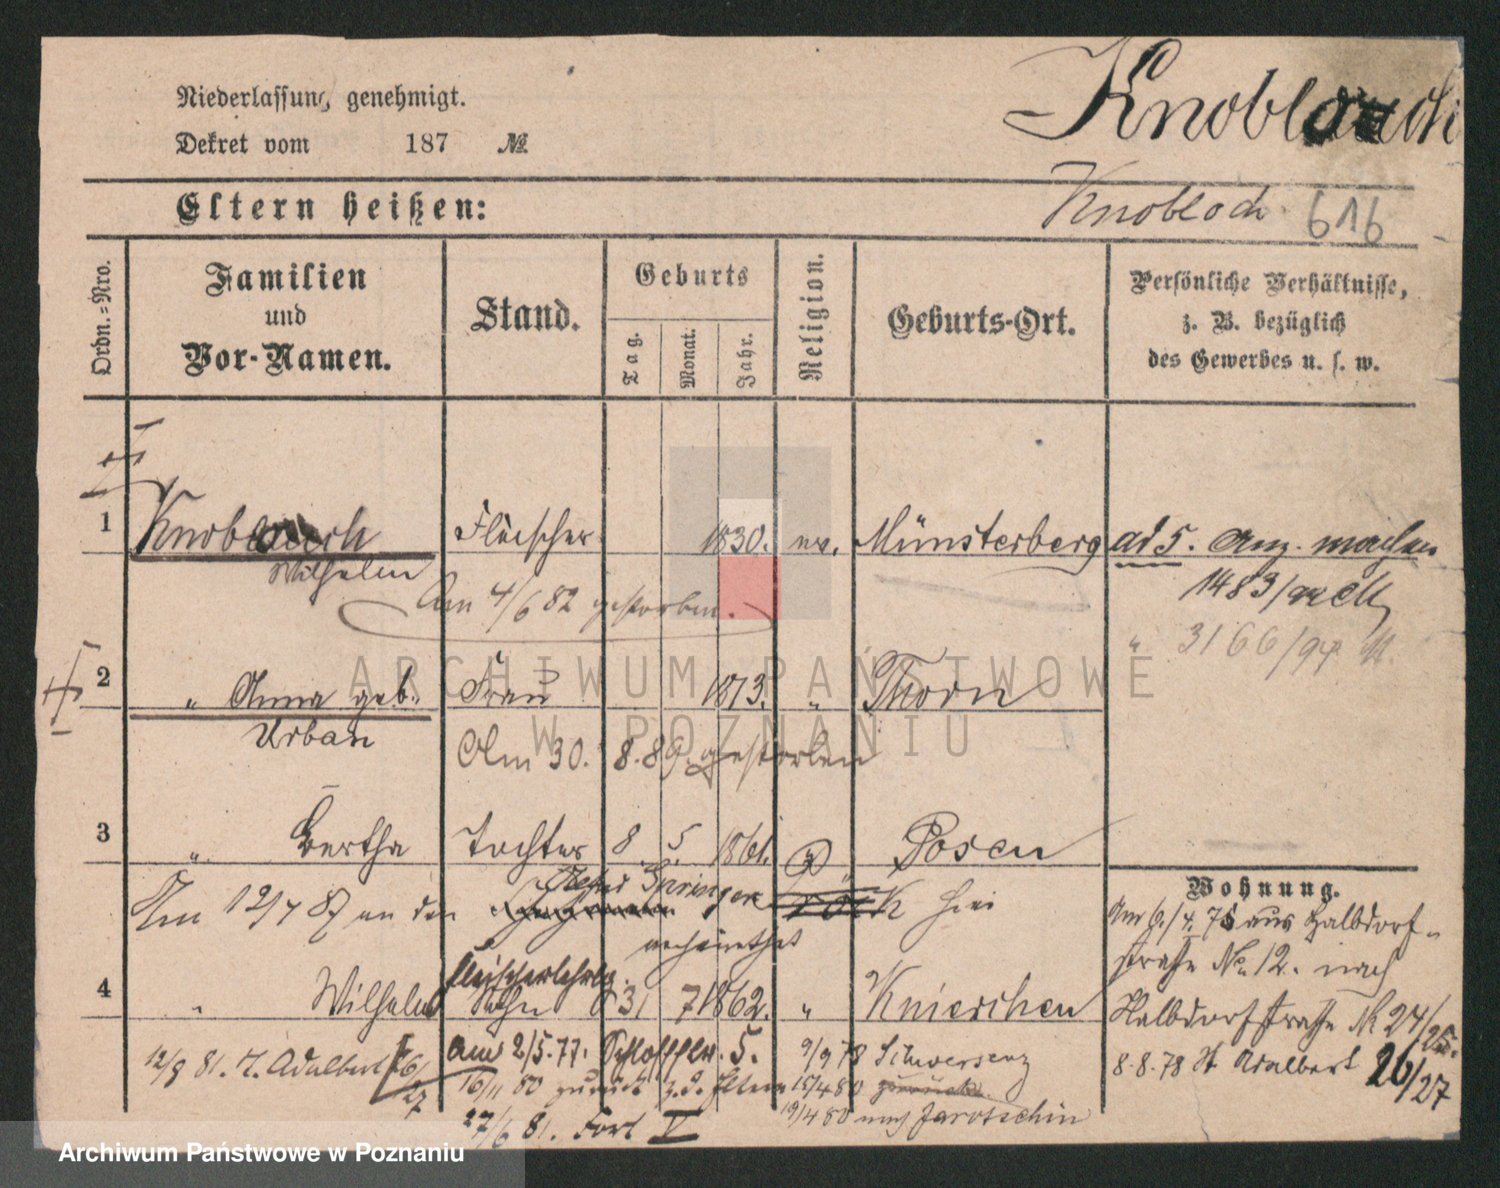 Niederlassung genehmigt.
Dekret vom 187 №
Knoblauch
Eltern heißen:
Knobloch 616
Ordn.=Nro.
Familien und Vor-Namen.
Stand.
Geburts
Tag.
Monat.
Jahr.
Religion.
Geburts-Ort.
Persönliche Verhältnisse,
z. B. bezüglich
des Gewerbes u. s. w.
1 Knoblauch Fleischer 1830. ev. Münsterberg ad 5.
Wilhelm
Am 4/6 82 gestorben.
1483/
" 3166/94
2 " Anna geb. Frau 1813. " Thorn
Urban
Am 30. 8. 89 gestorben
3 " Bertha Tochter 8 5. 1861. Posen
Am 12/7 87 an den Springer hier
verheirathet
Wohnung.
Am 6/4. 75 aus Halbdorf-
straße No 12. nach
Halbdorfstraße N 24/25.
8.8.78 St Adalbert 26/27
Fleischerlehrlg.
4 " Wilhelm Sohn 31 7 1862. " Knierchen
12/9 81. St. Adalbert 26/27
Am 2/5.77. Schlosserstr. 5.
9/9 78 Schwersenz
16/11 80 zurück z. d. Eltern
15/4 80 zurück
19/4 80 nach Jarotschin
27/6 81. Fort V
ARCHIWUM PAŃSTWOWE
W POZNANIU
Archiwum Państwowe w Poznaniu